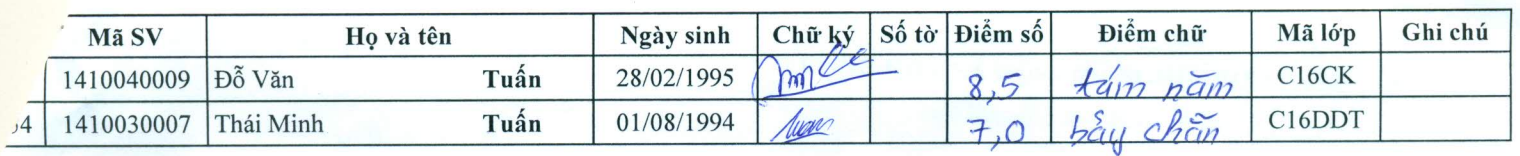 Mã SV Họ và tên Ngày sinh Chữ ký Số tờ Điểm số Điểm chữ Mã lớp Ghi chú
1410040009 Đỗ Văn Tuấn 28/02/1995 8,5 tám năm C16CK
1410030007 Thái Minh Tuấn 01/08/1994 7,0 bảy chẵn C16DDT